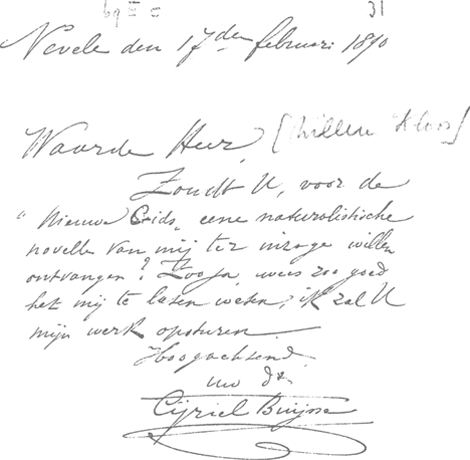 31
Nevele den 17den februari 1890
Waarde Heer, [Willem Kloos]
Zoudt U, voor de
"Nieuwe Gids" eene naturalistische
novelle van mij ter inzage willen
ontvangen? Zoo ja, wees zoo goed
het mij te laten weten; ik zal U
mijn werk opsturen.
Hoogachtend
uw dr.
Cyriel Buijsse